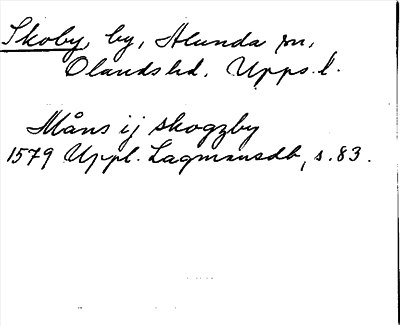 Skoby, by, Alunda sn,
Olands hd, Upps. l.
Måns ij skogzby
1579 Uppl. Lagmansdb, s. 83.